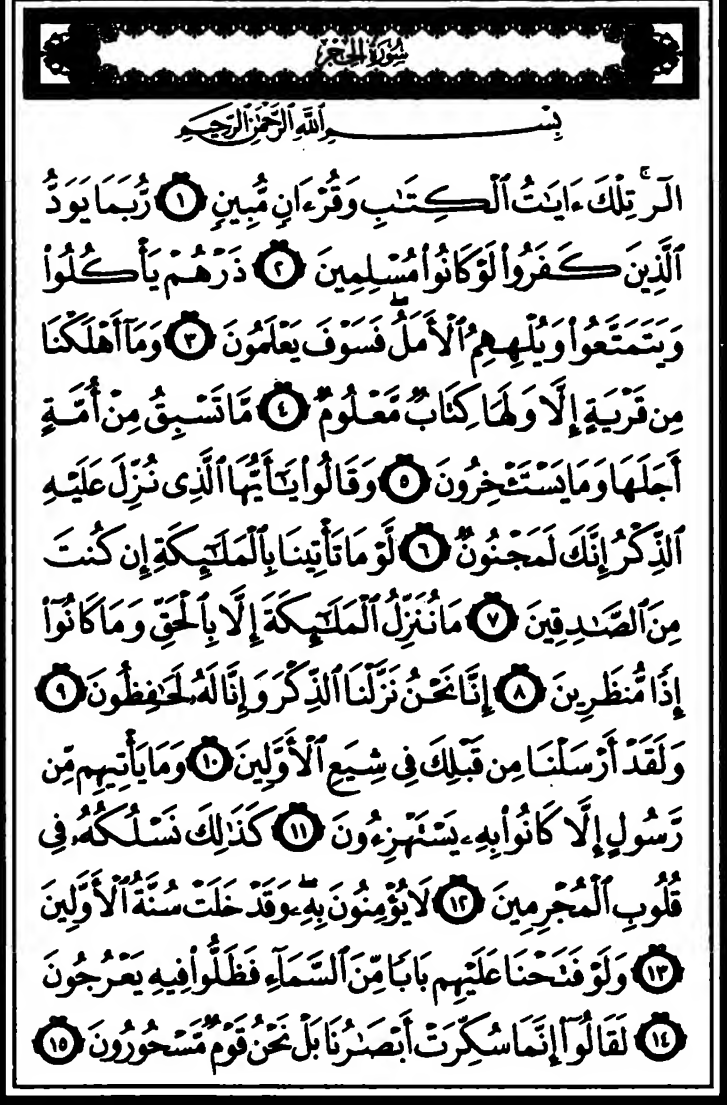 سُورَةُ الحِجْرِ
بِسْمِ ٱللَّهِ ٱلرَّحْمَٰنِ ٱلرَّحِيمِ
الٓرۚ تِلْكَ ءَايَٰتُ ٱلْكِتَٰبِ وَقُرْءَانٍ مُّبِينٍ ١ رُّبَمَا يَوَدُّ
ٱلَّذِينَ كَفَرُوا۟ لَوْ كَانُوا۟ مُسْلِمِينَ ٢ ذَرْهُمْ يَأْكُلُوا۟
وَيَتَمَتَّعُوا۟ وَيُلْهِهِمُ ٱلْأَمَلُۖ فَسَوْفَ يَعْلَمُونَ ٣ وَمَآ أَهْلَكْنَا
مِن قَرْيَةٍ إِلَّا وَلَهَا كِتَابٌ مَّعْلُومٌ ٤ مَّا تَسْبِقُ مِنْ أُمَّةٍ
أَجَلَهَا وَمَا يَسْتَـْٔخِرُونَ ٥ وَقَالُوا۟ يَٰٓأَيُّهَا ٱلَّذِى نُزِّلَ عَلَيْهِ
ٱلذِّكْرُ إِنَّكَ لَمَجْنُونٌ ٦ لَّوْ مَا تَأْتِينَا بِٱلْمَلَٰٓئِكَةِ إِن كُنتَ
مِنَ ٱلصَّٰدِقِينَ ٧ مَا نُنَزِّلُ ٱلْمَلَٰٓئِكَةَ إِلَّا بِٱلْحَقِّ وَمَا كَانُوٓا۟
إِذًا مُّنظَرِينَ ٨ إِنَّا نَحْنُ نَزَّلْنَا ٱلذِّكْرَ وَإِنَّا لَهُۥ لَحَٰفِظُونَ ٩
وَلَقَدْ أَرْسَلْنَا مِن قَبْلِكَ فِى شِيَعِ ٱلْأَوَّلِينَ ١٠ وَمَا يَأْتِيهِم مِّن
رَّسُولٍ إِلَّا كَانُوا۟ بِهِۦ يَسْتَهْزِءُونَ ١١ كَذَٰلِكَ نَسْلُكُهُۥ فِى
قُلُوبِ ٱلْمُجْرِمِينَ ١٢ لَا يُؤْمِنُونَ بِهِۦۖ وَقَدْ خَلَتْ سُنَّةُ ٱلْأَوَّلِينَ
١٣ وَلَوْ فَتَحْنَا عَلَيْهِم بَابًا مِّنَ ٱلسَّمَآءِ فَظَلُّوا۟ فِيهِ يَعْرُجُونَ
١٤ لَقَالُوٓا۟ إِنَّمَا سُكِّرَتْ أَبْصَٰرُنَا بَلْ نَحْنُ قَوْمٌ مَّسْحُورُونَ ١٥